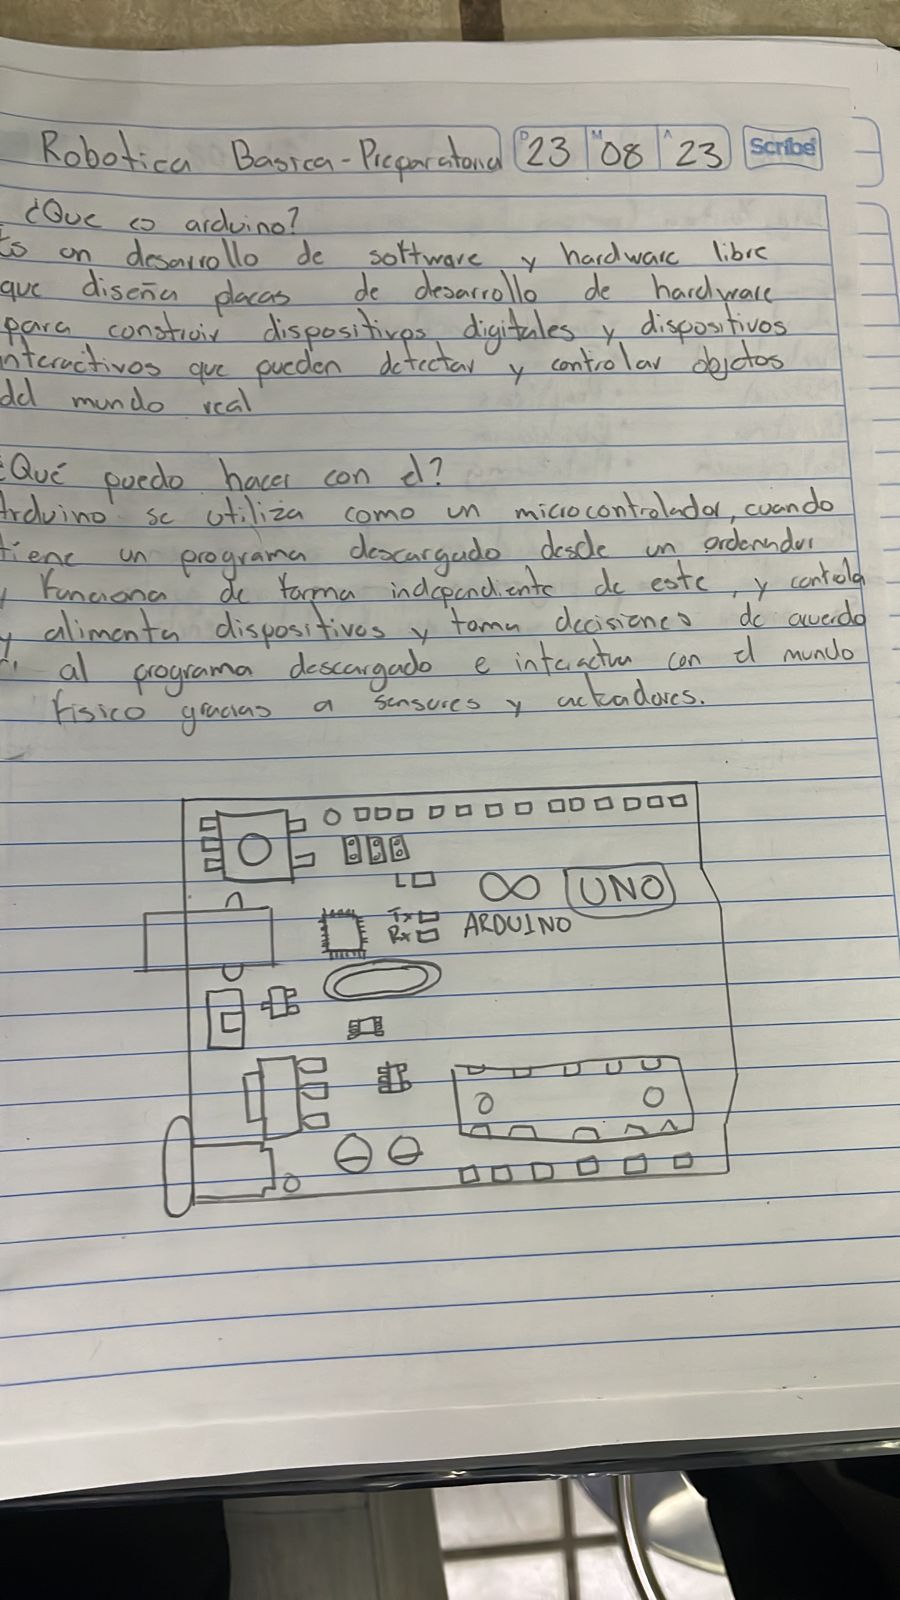 Robotica Basica-Preparatoria D 23 M 08 A 23 Scribe
¿Que es arduino?
Es un desarrollo de software y hardware libre
que diseña placas de desarrollo de hardware
para construir dispositivos digitales y dispositivos
interactivos que pueden detectar y controlar objetos
del mundo real
¿Qué puedo hacer con el?
Arduino se utiliza como un microcontrolador, cuando
tiene un programa descargado desde un ordenador
y funciona de forma independiente de este, y controla
y alimenta dispositivos y toma decisiones de acuerdo
al programa descargado e interactua con el mundo
fisico gracias a sensores y actuadores.
L
UNO
Tx
Rx ARDUINO